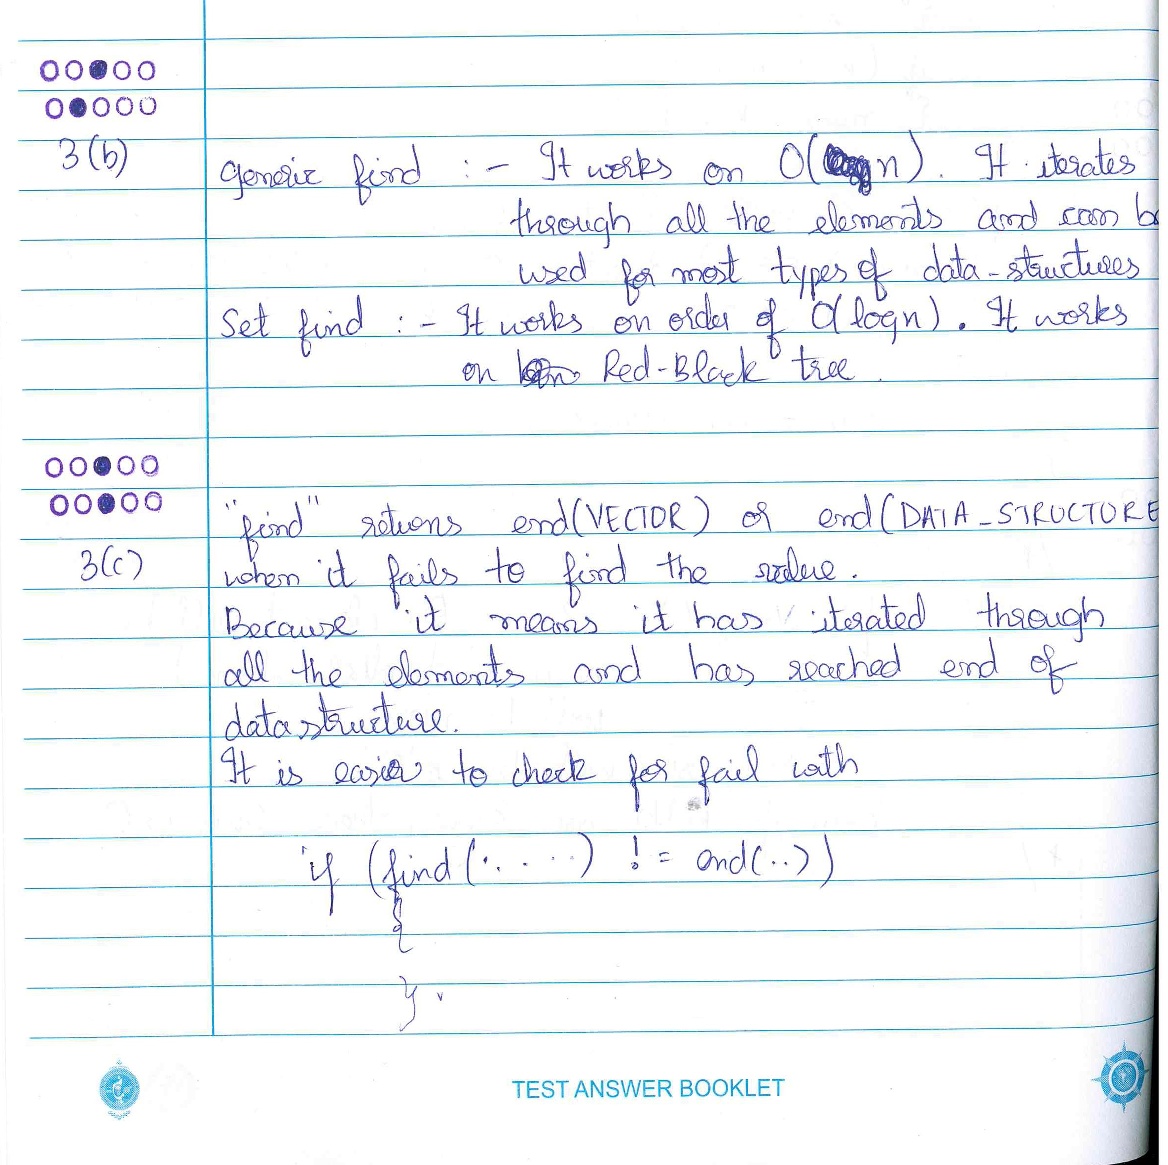 3(b)
Generic find :- It works on O(n). It iterates
through all the elements and can be
used for most types of data-structures
Set find :- It works on order of O(logn). It works
on Red-Black tree.
3(c)
"find" returns end(VECTOR) or end(DATA_STRUCTURE
when it fails to find the value.
Because it means it has iterated through
all the elements and has reached end of
data structure.
It is easier to check for fail with
if (find(.....) != end(..))
{
}.
TEST ANSWER BOOKLET